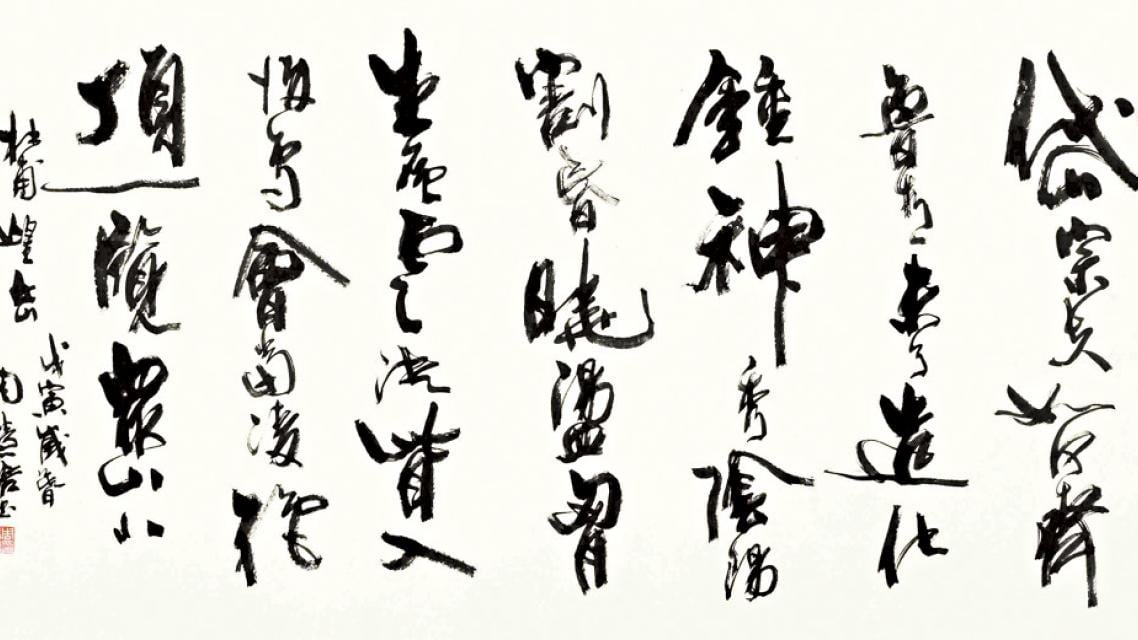 岱宗夫如何齊
魯青未了造化
鍾神秀陰陽
割昏曉盪胷
生層雲決眥入
歸鳥會當凌絕
頂一覽眾山小
杜甫望岳
戊寅歲春